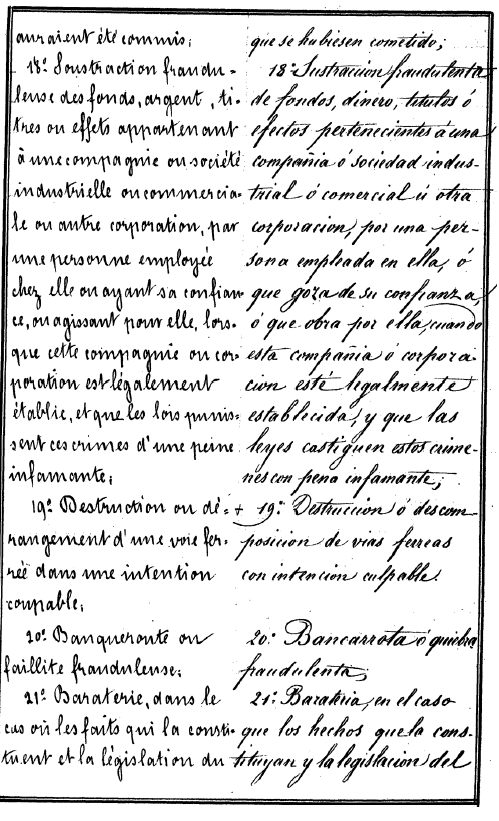 auraient été commis;
18º Soustraction fraudu-
leuse des fonds, argent, ti-
tres ou effets appartenant
à une compagnie ou société
industrielle ou commercia-
le ou autre corporation, par
une personne employée
chez elle ou ayant sa confian-
ce, ou agissant pour elle, lors-
que cette compagnie ou cor-
poration est légalement
établie, et que les lois punis-
sent ces crimes d'une peine
infamante;
19º Destruction ou dé-
rangement d'une voie fer-
rée dans une intention
coupable;
20º Banqueroute ou
faillite frauduleuse;
21º Baraterie, dans le
cas où les faits qui la consti-
tuent et la législation du
que se hubiesen cometido;
18º Sustraccion fraudulenta
de fondos, dinero, titulos ó
efectos pertenecientes á una
compañia ó sociedad indus-
trial ó comercial ú otra
corporacion, por una per-
sona empleada en ella, ó
que goza de su confianza,
ó que obra por ella, cuando
esta compañia ó corpora-
cion esté legalmente
establecida, y que las
leyes castiguen estos crime-
nes con pena infamante;
+ 19º Destruccion ó descom-
posicion de vias ferreas
con intencion culpable.
20º Bancarrota ó quiebra
fraudulenta;
21º Barateria, en el caso
que los hechos que la cons-
tituyan y la legislacion del